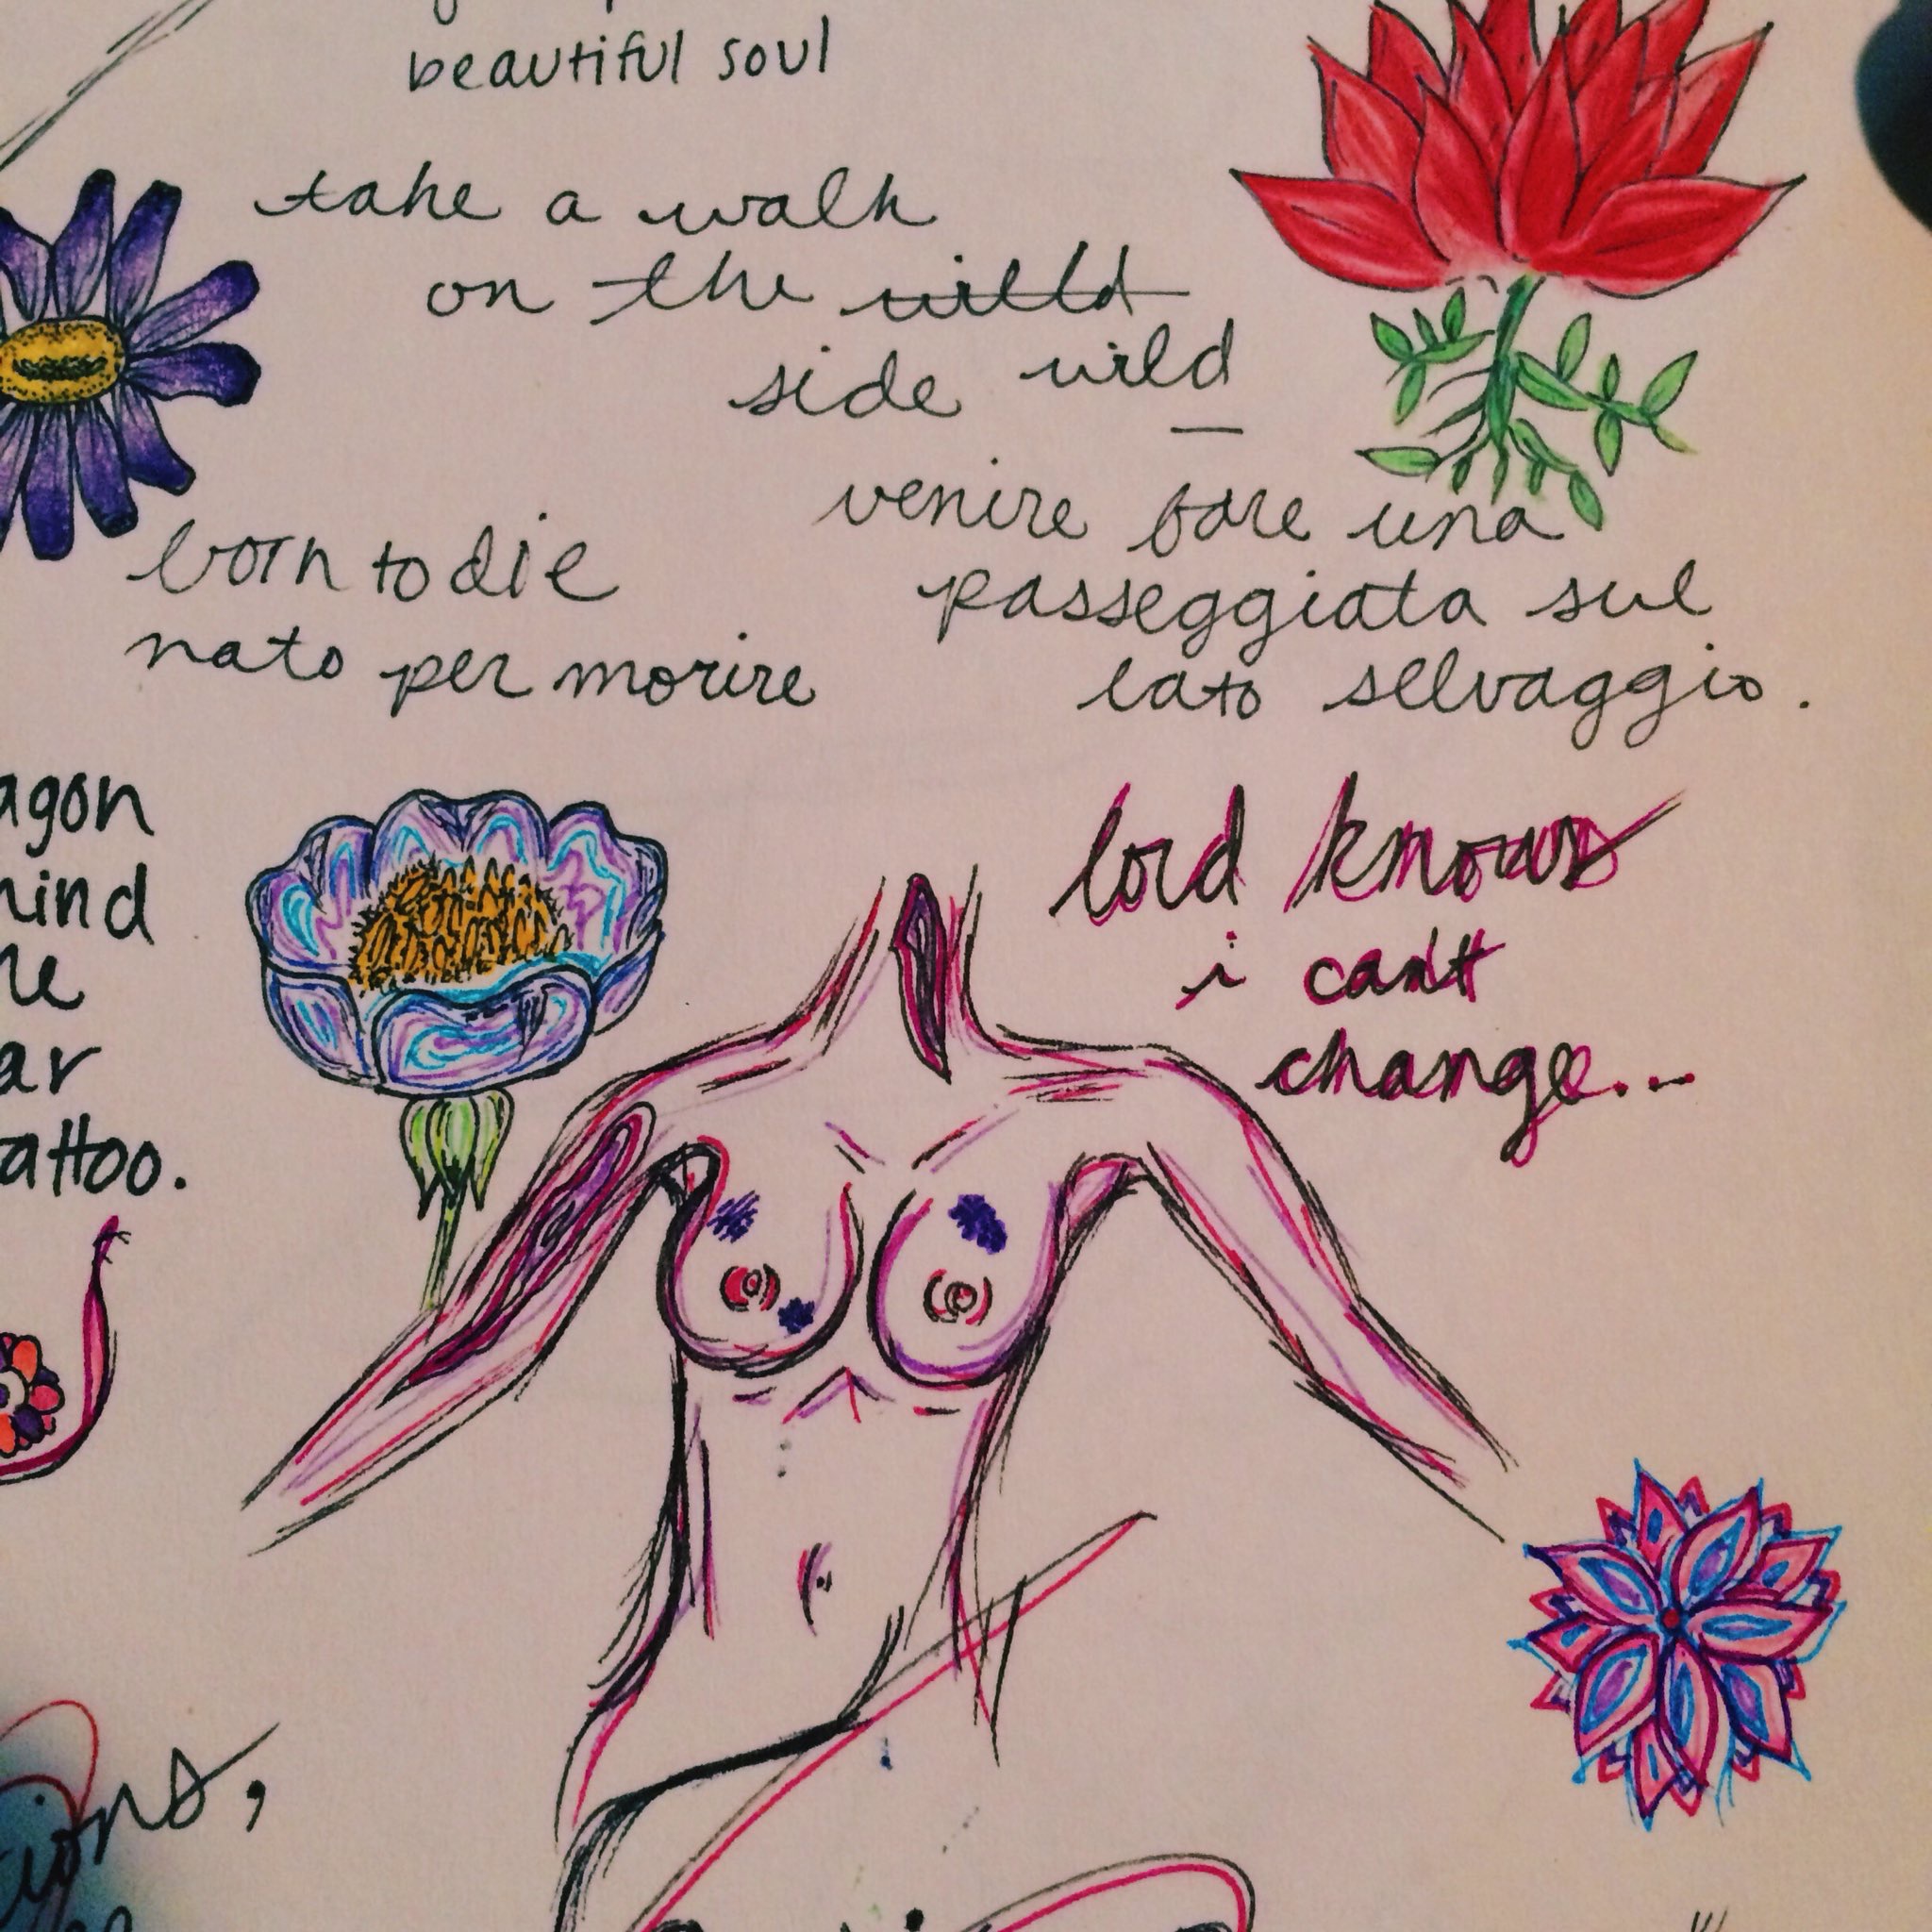 beautiful soul
take a walk
on the willd
side wild
born to die
nato per morire
venire fare una
passeggiata sul
lato selvaggio.
lord knows
i can't
change...
agon
ar
attoo.